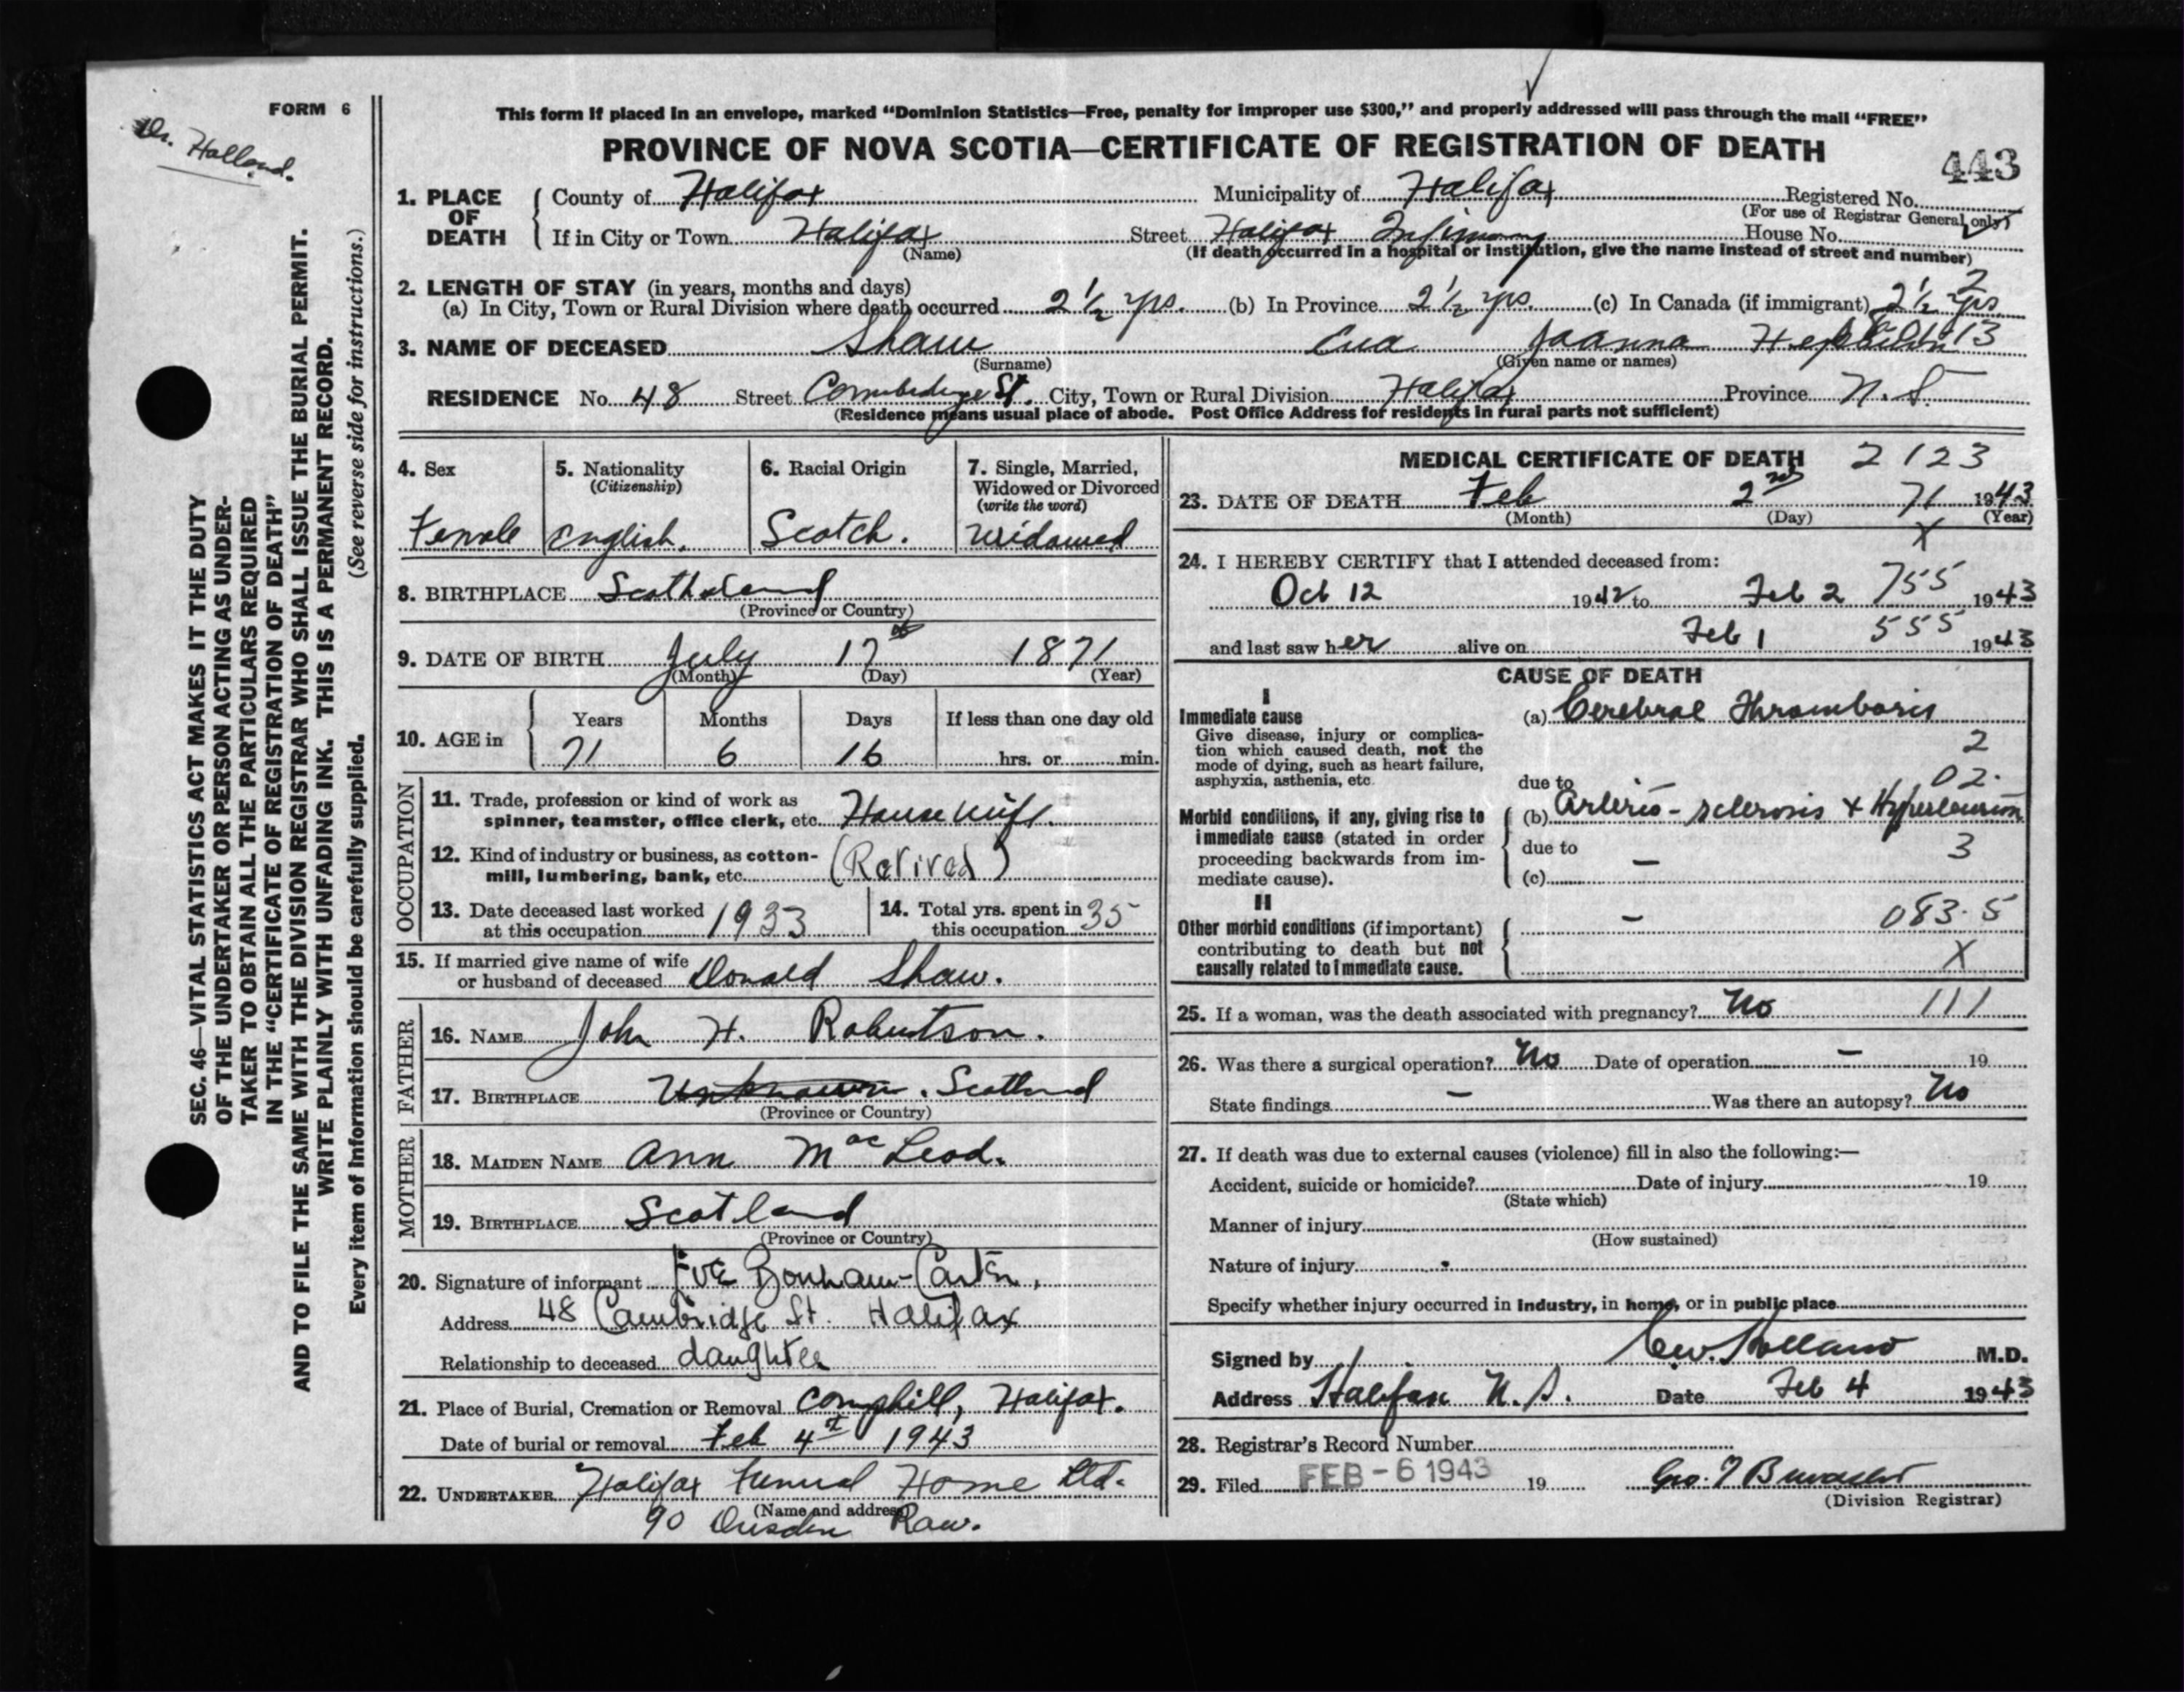 FORM 6
Dr. Holland.
This form if placed in an envelope, marked "Dominion Statistics—Free, penalty for improper use $300," and properly addressed will pass through the mail "FREE"
PROVINCE OF NOVA SCOTIA—CERTIFICATE OF REGISTRATION OF DEATH
443
1. PLACE OF DEATH County of Halifax Municipality of Halifax Registered No.
(For use of Registrar General only)
If in City or Town Halifax Street Halifax Infirmary House No.
(Name) (If death occurred in a hospital or institution, give the name instead of street and number)
2. LENGTH OF STAY (in years, months and days) 2
(a) In City, Town or Rural Division where death occurred 2 1/2 yrs. (b) In Province 2 1/2 yrs. (c) In Canada (if immigrant) 2 1/2 yrs.
3. NAME OF DECEASED Shaw Eva Joanna 13
(Surname) (Given name or names)
RESIDENCE No. 48 Street Cambridge St. City, Town or Rural Division Halifax Province N.S.
(Residence means usual place of abode. Post Office Address for residents in rural parts not sufficient)
4. Sex Female
5. Nationality (Citizenship) English.
6. Racial Origin Scotch.
7. Single, Married, Widowed or Divorced (write the word) Widowed
8. BIRTHPLACE Scotland
(Province or Country)
9. DATE OF BIRTH July 17th 1871
(Month) (Day) (Year)
10. AGE in Years 71 Months 6 Days 16 If less than one day old hrs. or min.
OCCUPATION
11. Trade, profession or kind of work as spinner, teamster, office clerk, etc. House wife.
12. Kind of industry or business, as cotton-mill, lumbering, bank, etc. (Retired)
13. Date deceased last worked at this occupation 1933
14. Total yrs. spent in this occupation 35
15. If married give name of wife or husband of deceased Donald Shaw.
FATHER
16. NAME John H. Robertson.
17. BIRTHPLACE Unknown. Scotland
(Province or Country)
MOTHER
18. MAIDEN NAME Ann MacLeod.
19. BIRTHPLACE Scotland
(Province or Country)
20. Signature of informant Eve Bonham-Carter,
Address 48 Cambridge St. Halifax
Relationship to deceased daughter
21. Place of Burial, Cremation or Removal Camphill, Halifax.
Date of burial or removal Feb 4th 1943
22. UNDERTAKER Halifax Funeral Home Ltd.
(Name and address)
90 Row.
MEDICAL CERTIFICATE OF DEATH 2123
23. DATE OF DEATH Feb 2nd 71 1943
(Month) (Day) (Year)
X
24. I HEREBY CERTIFY that I attended deceased from:
Oct 12 1942 to Feb 2 755 1943
and last saw her alive on Feb 1 555 1943
CAUSE OF DEATH
I
Immediate cause (a) Cerebral Thrombosis
Give disease, injury or complication which caused death, not the mode of dying, such as heart failure, asphyxia, asthenia, etc.
2
due to 02.
Morbid conditions, if any, giving rise to immediate cause (stated in order proceeding backwards from immediate cause).
(b) Arterio-sclerosis + Hypertension
due to – 3
(c)
II
Other morbid conditions (if important) contributing to death but not causally related to immediate cause.
– 083.5
X
25. If a woman, was the death associated with pregnancy? No 111
26. Was there a surgical operation? No Date of operation – 19
State findings – Was there an autopsy? No
27. If death was due to external causes (violence) fill in also the following:—
Accident, suicide or homicide? Date of injury 19
(State which)
Manner of injury
(How sustained)
Nature of injury
Specify whether injury occurred in industry, in home, or in public place
Signed by C.W. Holland M.D.
Address Halifax N.S. Date Feb 4 1943
28. Registrar's Record Number
29. Filed FEB - 6 1943 19 Geo.
(Division Registrar)
SEC. 46—VITAL STATISTICS ACT MAKES IT THE DUTY
OF THE UNDERTAKER OR PERSON ACTING AS UNDER-
TAKER TO OBTAIN ALL THE PARTICULARS REQUIRED
IN THE "CERTIFICATE OF REGISTRATION OF DEATH"
AND TO FILE THE SAME WITH THE DIVISION REGISTRAR WHO SHALL ISSUE THE BURIAL PERMIT.
WRITE PLAINLY WITH UNFADING INK. THIS IS A PERMANENT RECORD.
Every item of information should be carefully supplied. (See reverse side for instructions.)